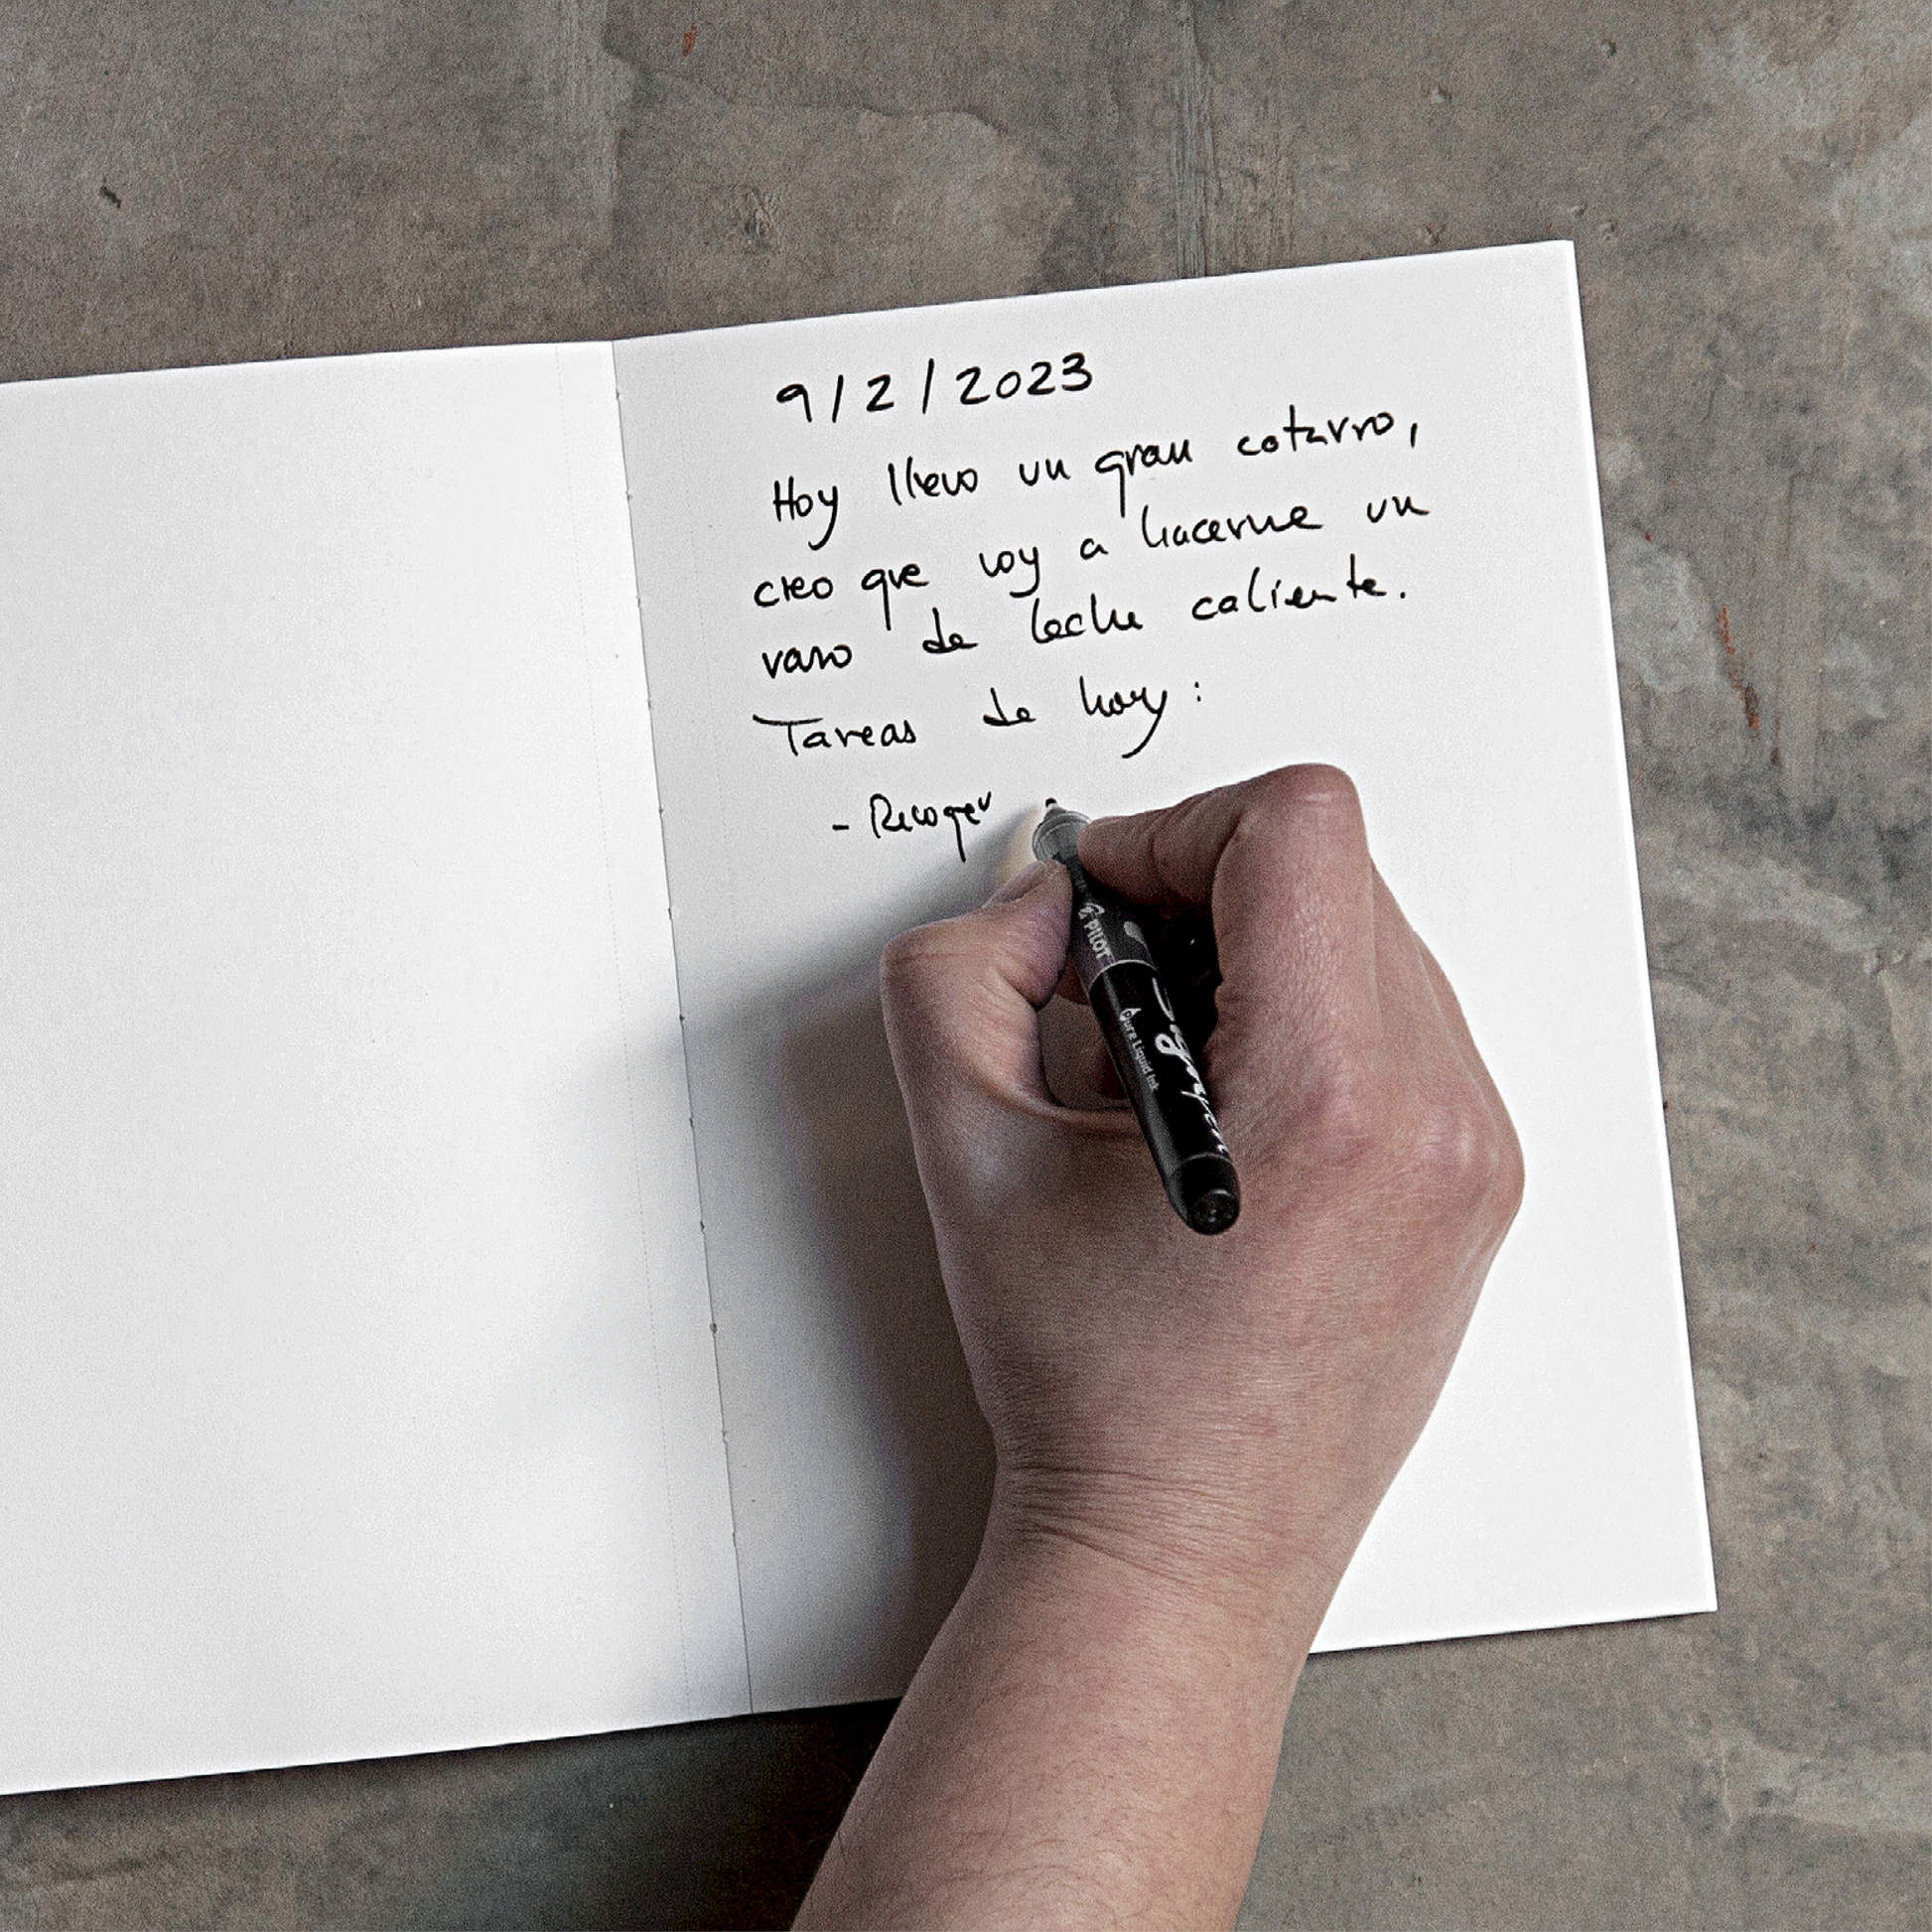 9/2/2023
Hoy llevo un gran catarro,
creo que voy a hacerme un
vaso de leche caliente.
Tareas de hoy:
- Recoger
PILOT
Pure Liquid Ink